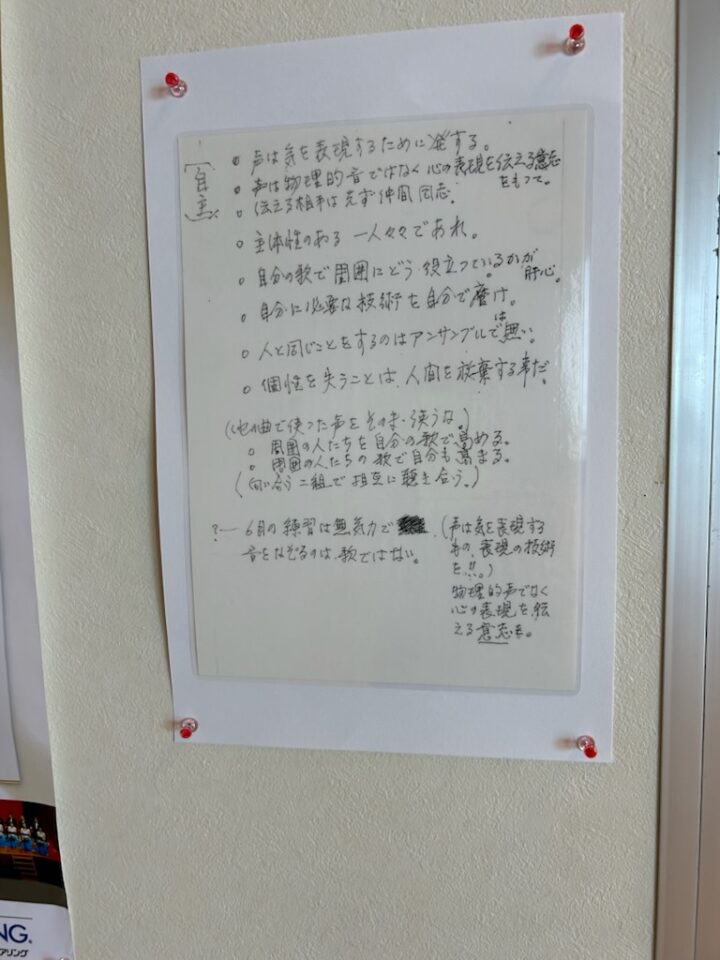 [自主]
○ 声は気を表現するために発する。
○ 声は物理的音ではなく心の表現を伝える意志をもって。
○ 伝える相手は先ず仲間同志。
○ 主体性のある一人々々であれ。
○ 自分の歌で周囲にどう役立っているかが肝心。
○ 自分に必要な技術を自分で磨け。
○ 人と同じことをするのはアンサンブルでは無い。
○ 個性を失うことは、人間を放棄する事だ。
(他の曲で使った声をそのまま使うな。)
○ 周囲の人たちを自分の歌で高める。
○ 周囲の人たちの歌で自分も高まる。
(向い合う二組で相互に聴き合う。)
?― 6月の練習は無気力で
音をなぞるのは歌ではない。
(声は気を表現する
もの、表現の技術
を!!。)
物理的声でなく
心の表現を伝
える意志を。
NG.
アリング